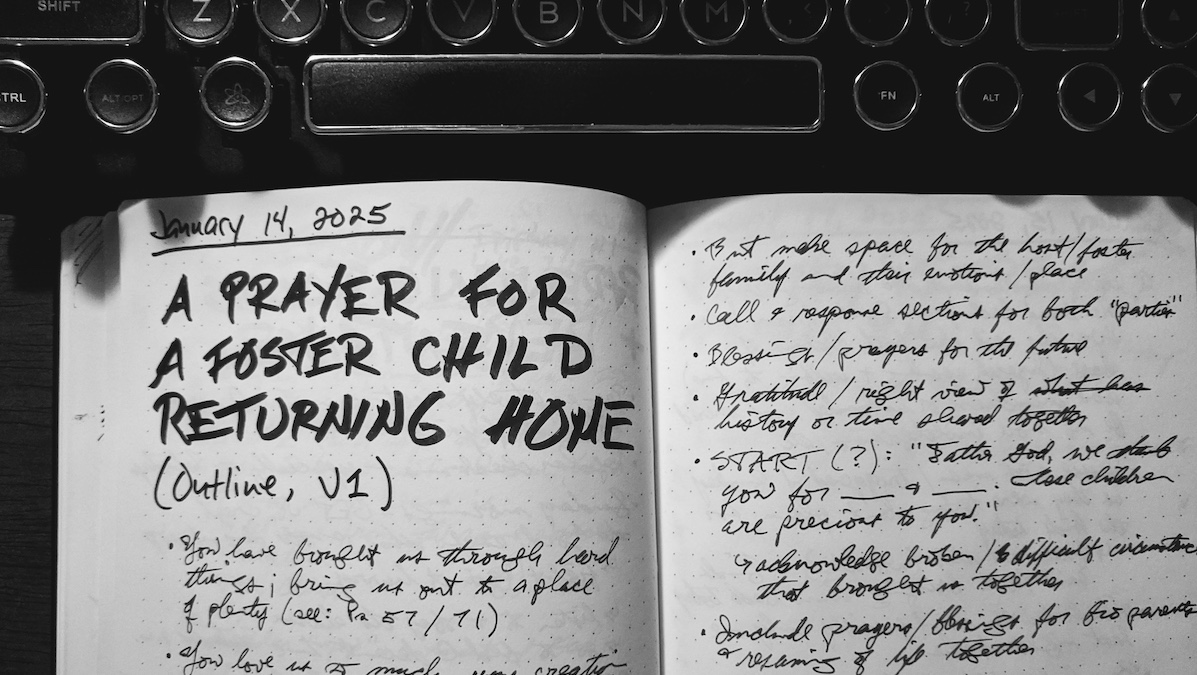 SHIFT
Z X C V B N M
CTRL
ALT OPT
FN
ALT
January 14, 2025
A PRAYER FOR
A FOSTER CHILD
RETURNING HOME
(Outline, V1)
• You have brought us through hard
things; bring us out to a place
of plenty (see: Ps 57 / 71)
• You love us so much, your creation
• But make space for the host/foster
family and their emotions/place
• Call & response sections for both "parties"
• Blessings/prayers for the future
• Gratitude / right view of what has
history or time shared together
• START (?): "Father God, we thank
you for ___ & ___. These children
are precious to you."
↳ acknowledge broken / difficult circumstance
that brought us together
• Include prayers/blessings for bio parents
& resuming of life together